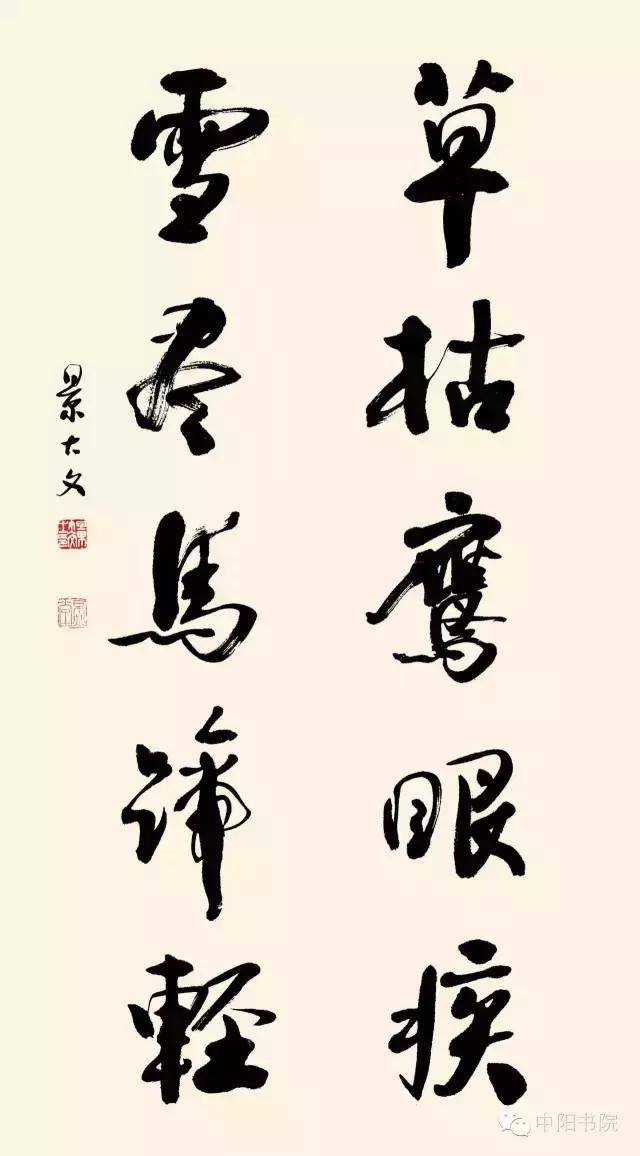 草枯鷹眼疾
雪尽馬蹄輕
景大文
中阳书院